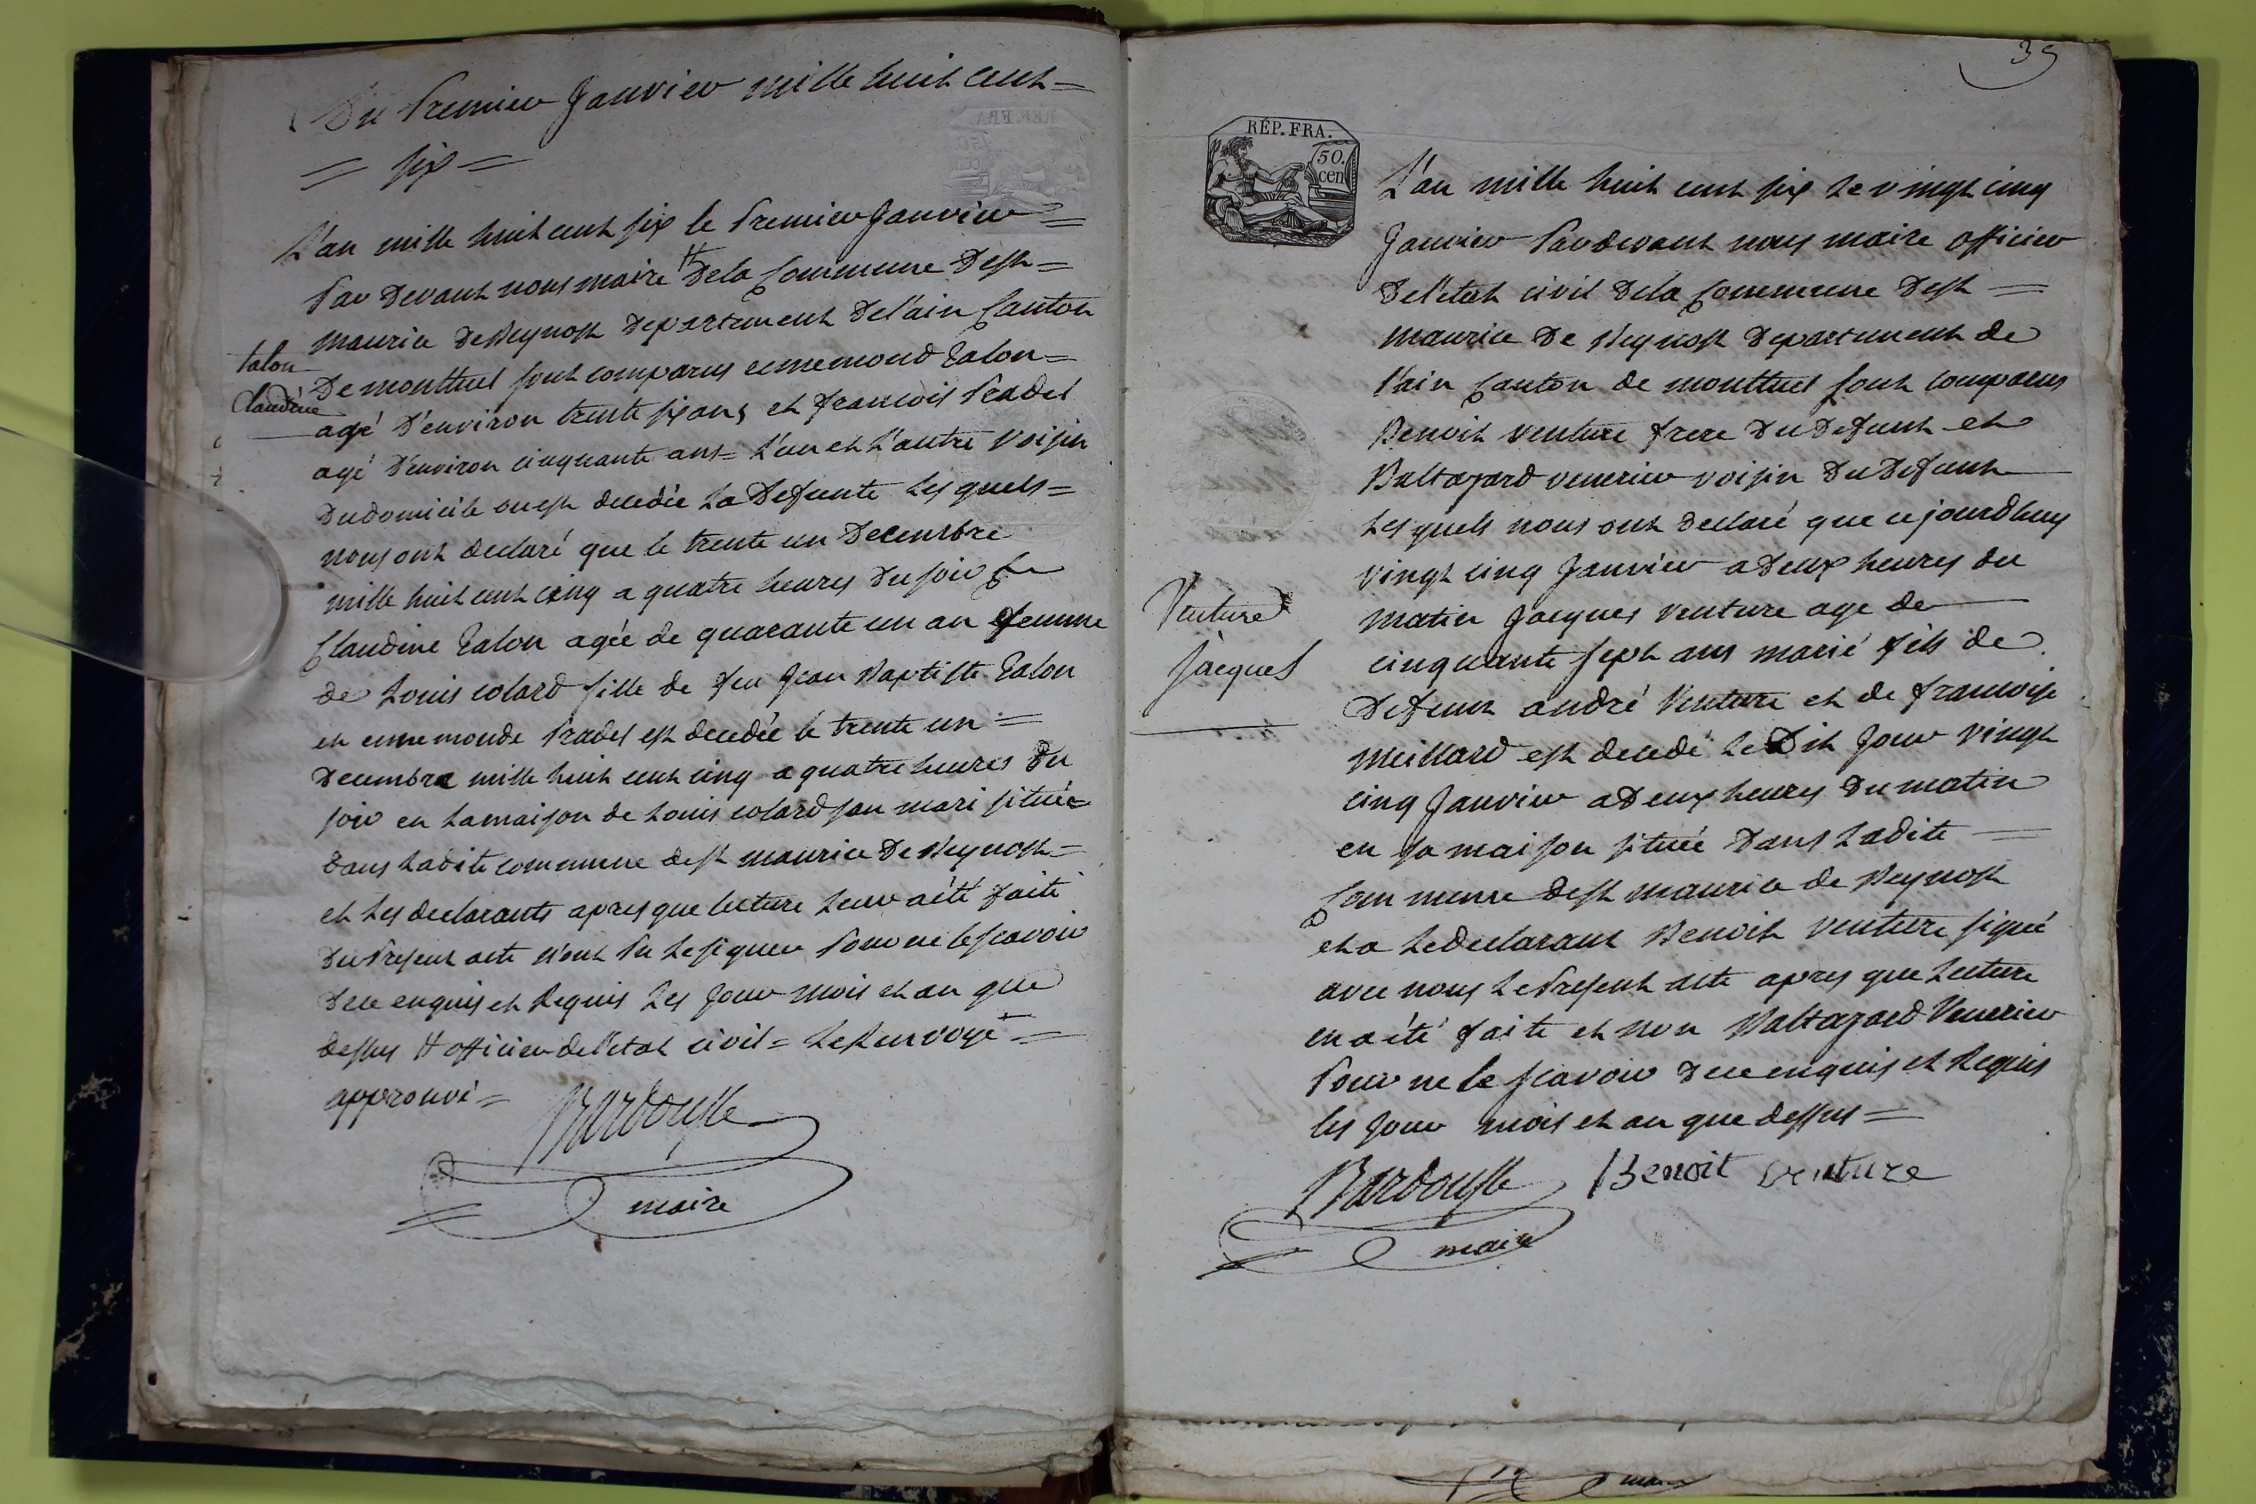 Du Premier Janvier mille huit cent =
= six =
L'an mille huit cent six le Premier Janvier =
Par devant nous maire # de la Commune de st =
maurice de Beynost departement de l'ain Canton
talon
Claudine
De montluel sont comparus ennemond Talon =
agé d'environ trente six ans et francois Pradel
agé d'environ cinquante ans = L'un et L'autre Voisin
du domicile ou est decedée La Defunte Lesquels =
nous ont declaré que le trente un Decembre
mille huit cent cinq a quatre heures du soir
Claudine Talon agée de quarante un an femme
de Louis colard fille de feu Jean Baptiste Talon
et ennemonde Pradel est decedée le trente un =
Decembre mille huit cent cinq a quatre heures du
soir en La maison de Louis colard son mari située
dans Ladite commune de st maurice de Beynost =
et Les declarants apres que lecture Leur a été faite
du Present acte N'ont Pu Le signer Pour ne le scavoir
de ce enquis et Requis Les Jour mois et an que
dessus # officier de l'etat civil = Le Renvoye =
approuvé =
Bardousse
maire
35
RÉP. FRA.
50.
cen
L'an mille huit cent six Le vingt cinq
Janvier Pardevant nous maire officier
de l'etat civil de la Commune de st =
maurice de Beynost departement de
l'ain Canton de montluel sont comparus
Benoit venture frere du Defunt et
Baltazard venerier voisin du Defunt
Lesquels nous ont declaré que ce jourd'huy
vingt cinq Janvier a Deux heures du
Venture
Jacques
matin Jacques venture age de
cinquante sept ans marié fils de
Defunt andré Venture et de francoise
Meillard est decedé Le Dit Jour vingt
cinq Janvier a Deux heures du matin
en sa maison située Dans Ladite
Commune de st maurice de Beynost
et a Le declarant Benoit venture signé
avec nous Le Present acte apres que Lecture
en a été faite et non Baltazard Venerier
Pour ne le scavoir de ce enquis et Requis
les Jour mois et an que dessus =
Bardousse Benoit venture
maire